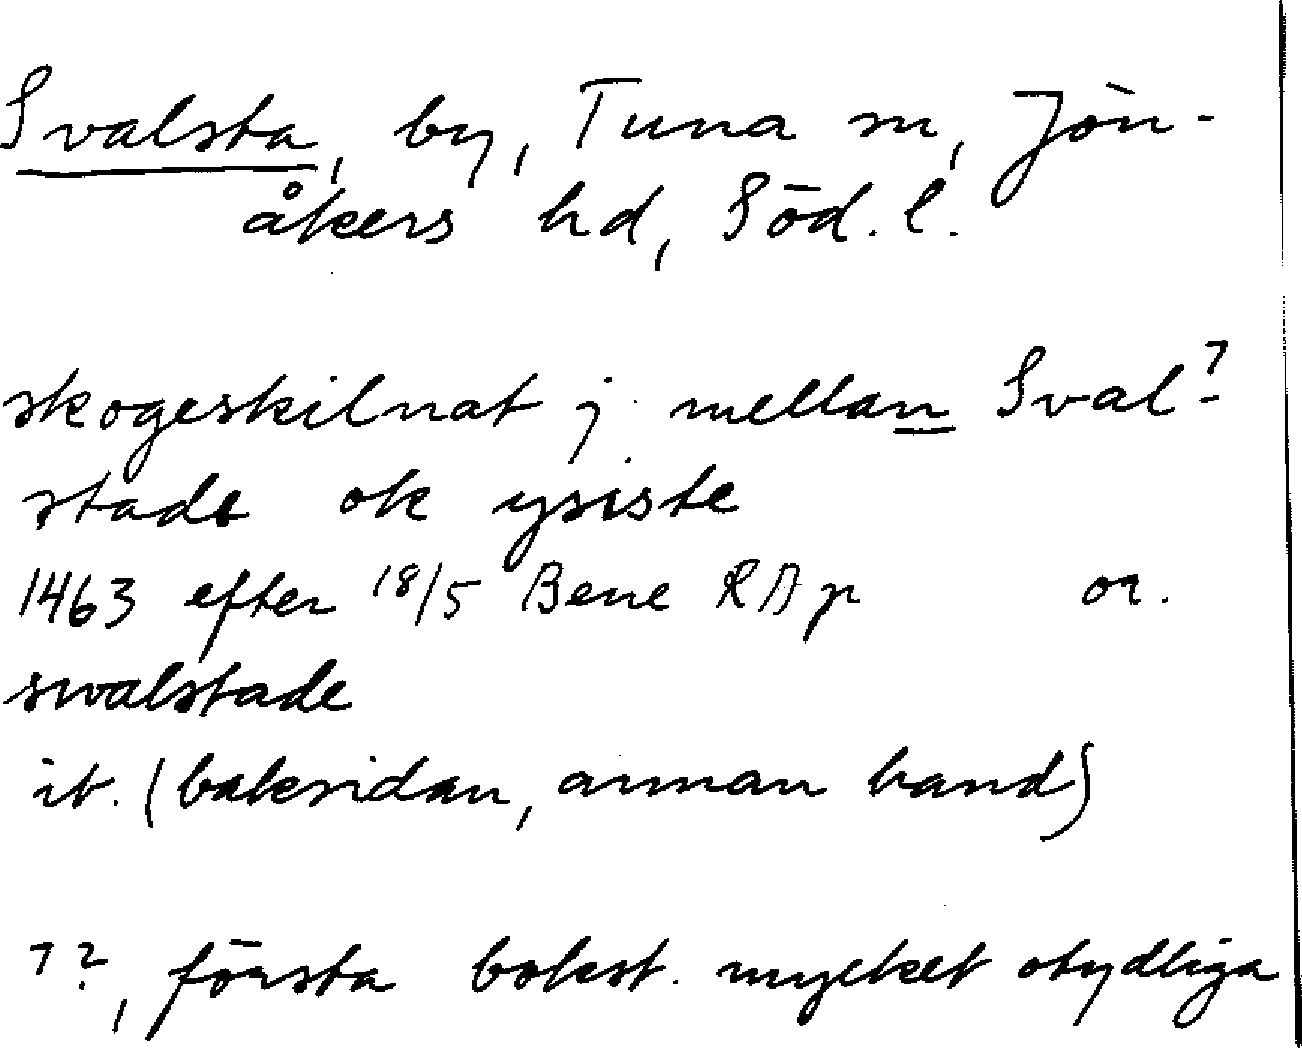 Svalsta, by, Tuna sn, Jön-
åkers hd, Söd. l.
skogeskilnat j mellan Sval?-
stade ok ysiste
1463 efter 18/5 Bene RAp or.
swalstade
it. (baksidan, annan hand)
??, första bokst. mycket otydliga